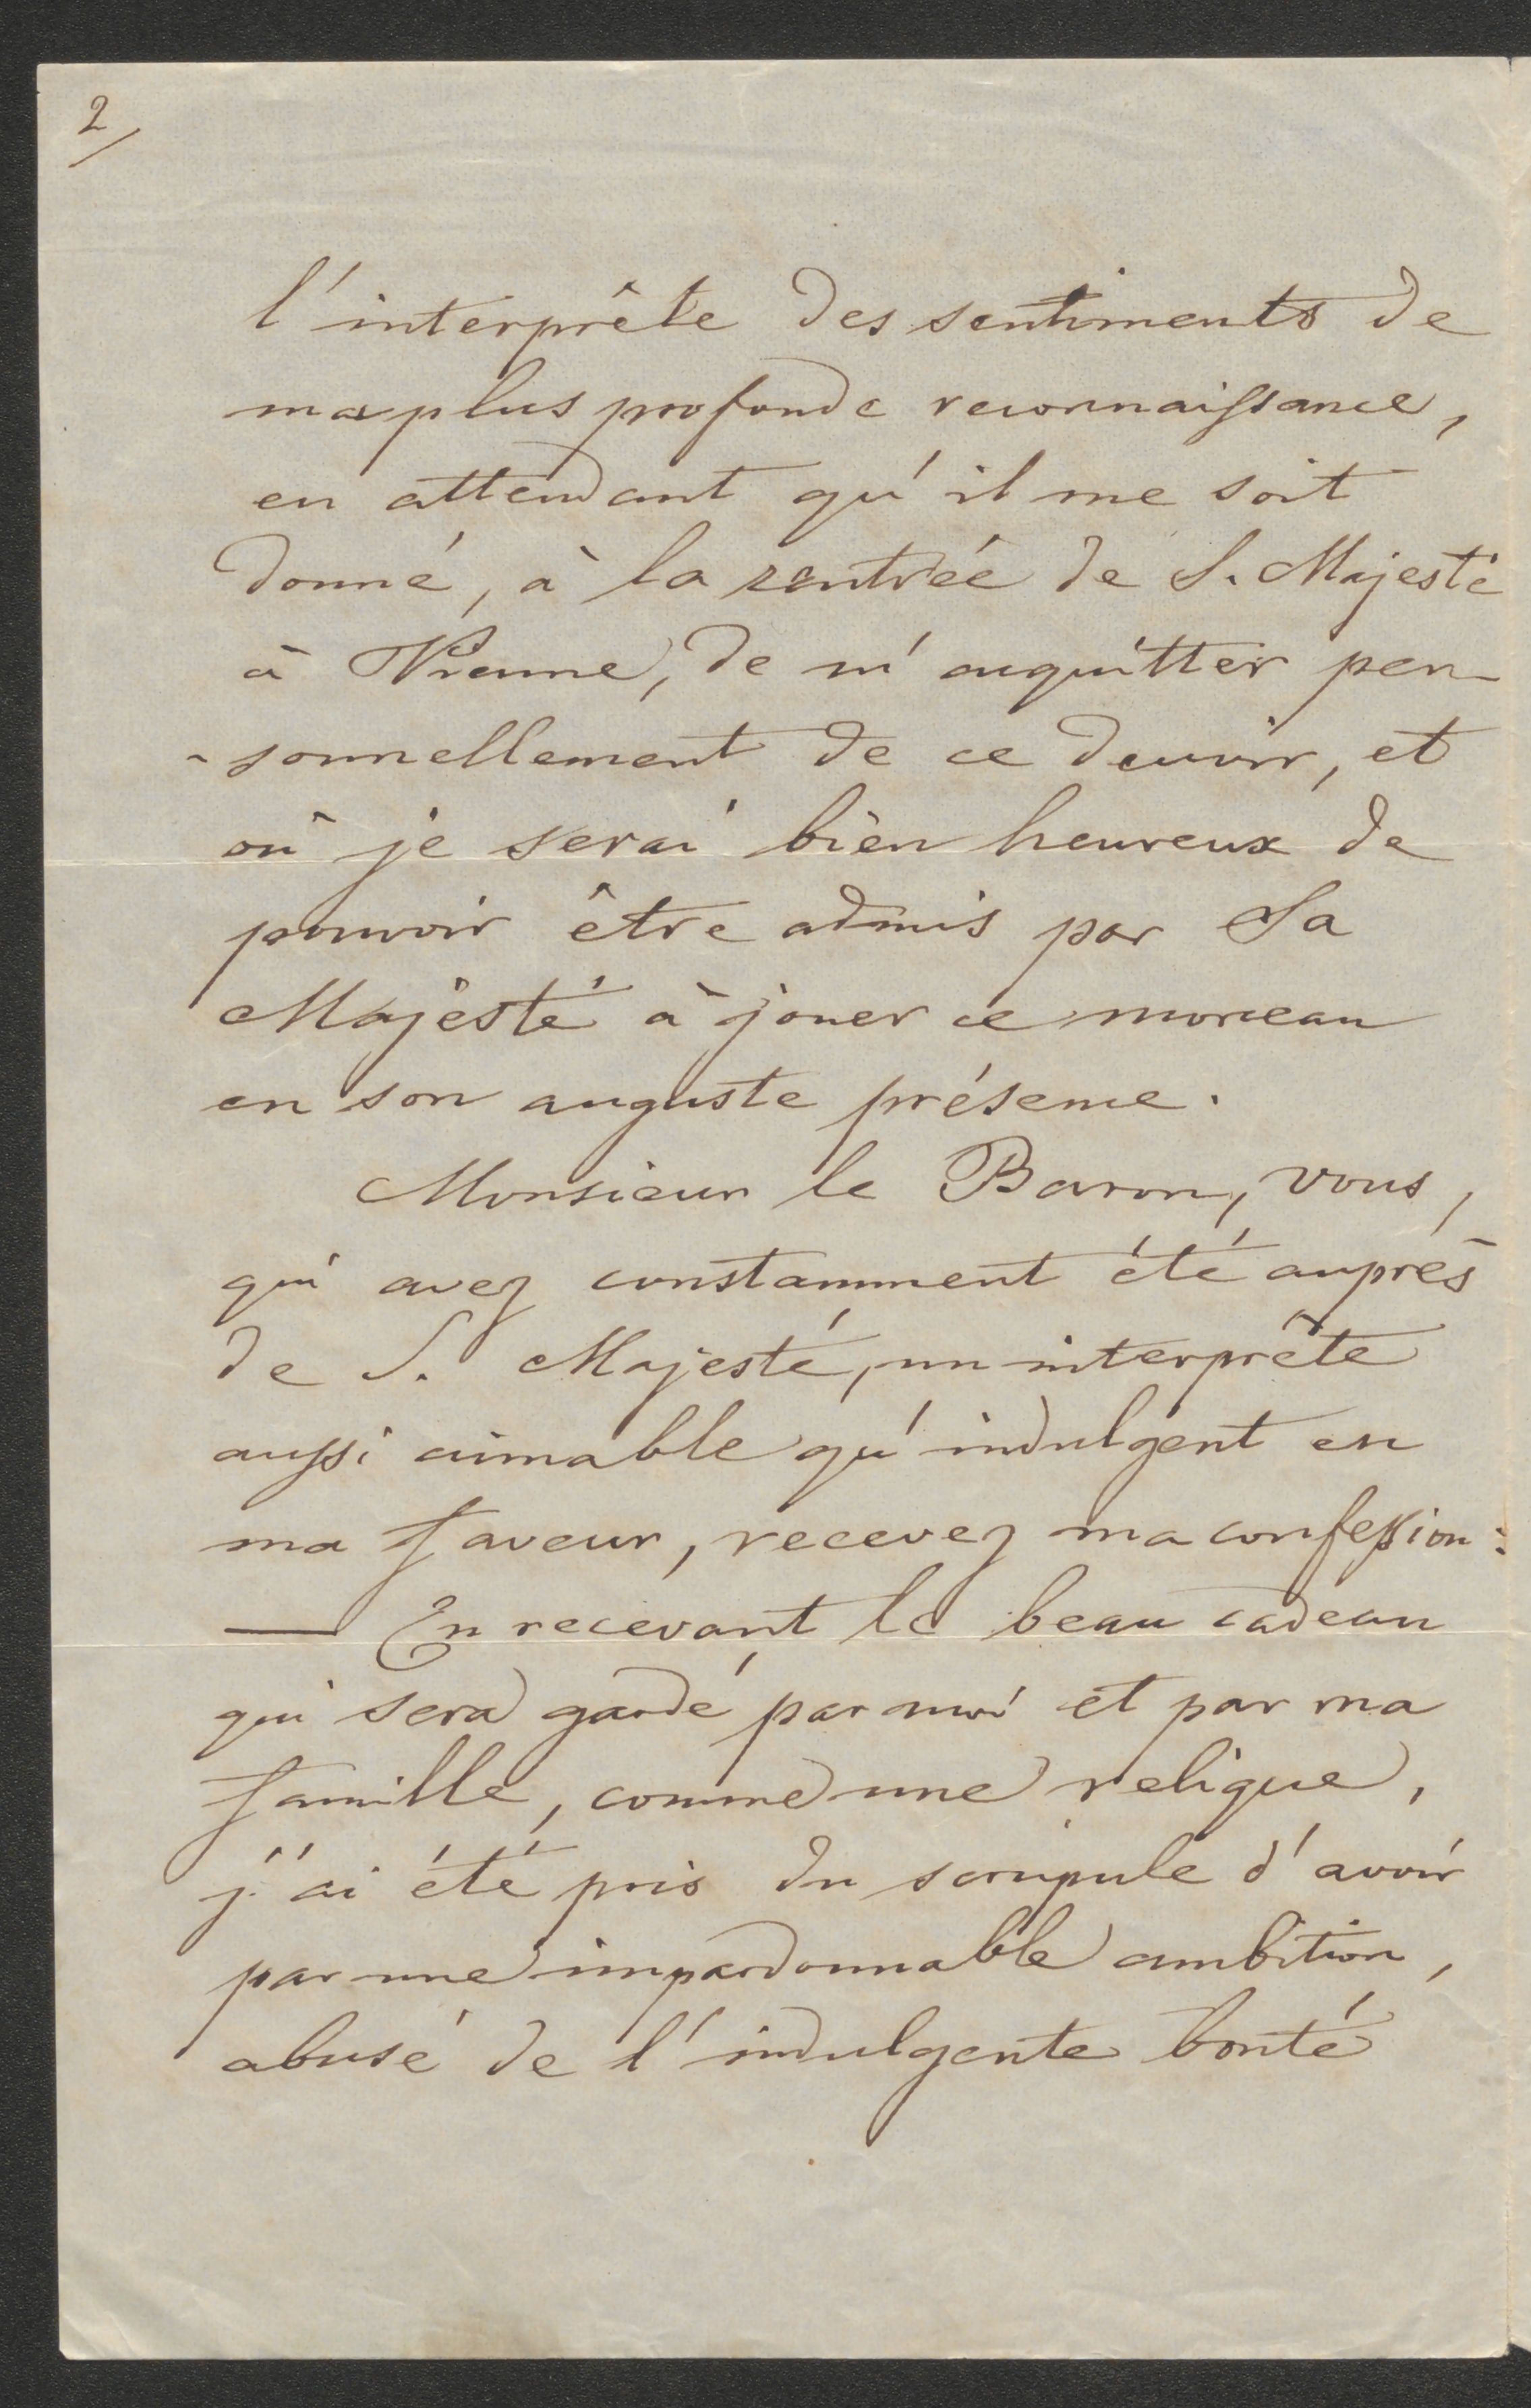 2/
l'interprête des sentiments de
ma plus profonde reconnaissance,
en attendant qu'il me soit
donné, à la rentrée de S. Majesté
à Vienne, de m'acquitter per-
-sonnellement de ce devoir, et
où je serai bien heureux de
pouvoir être admis par Sa
Majesté à jouer ce morceau
en son auguste présence.
Monsieur le Baron, vous,
qui avez constamment été auprès
de S. Majesté, un interprête
aussi aimable qu'indulgent en
ma faveur, recevez ma confession:
— En recevant le beau cadeau
qui sera gardé par moi et par ma
famille, comme une relique,
j'ai été pris du scrupule d'avoir
par une impardonnable ambition,
abusé de l'indulgente bonté